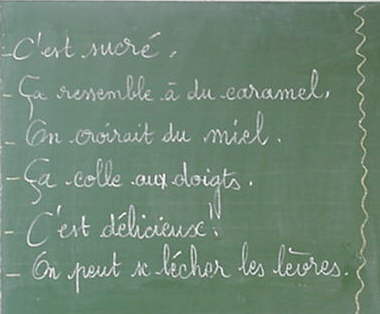 - C'est sucré.
- Ça ressemble à du caramel,
- On croirait du miel.
- Ça colle aux doigts.
- C'est délicieux!
- On peut se lécher les lèvres.